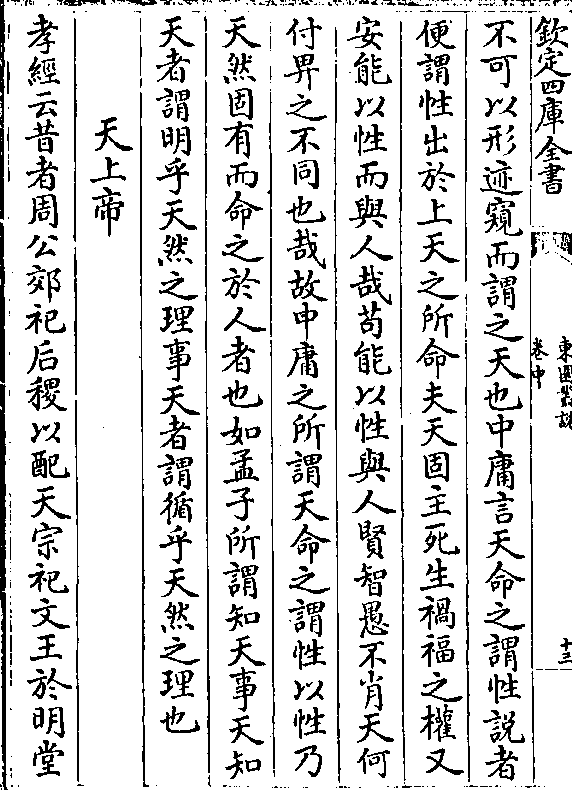 欽定四庫全書
東園叢說
卷中
十三
不可以形迹窺而謂之天也中庸言天命之謂性說者
便謂性出於上天之所命夫天固主死生禍福之權又
安能以性而與人哉苟能以性與人賢智愚不肖天何
付畀之不同也哉故中庸之所謂天命之謂性以性乃
天然固有而命之於人者也如孟子所謂知天事天知
天者謂明乎天然之理事天者謂循乎天然之理也
天上帝
孝經云昔者周公郊祀后稷以配天宗祀文王於明堂